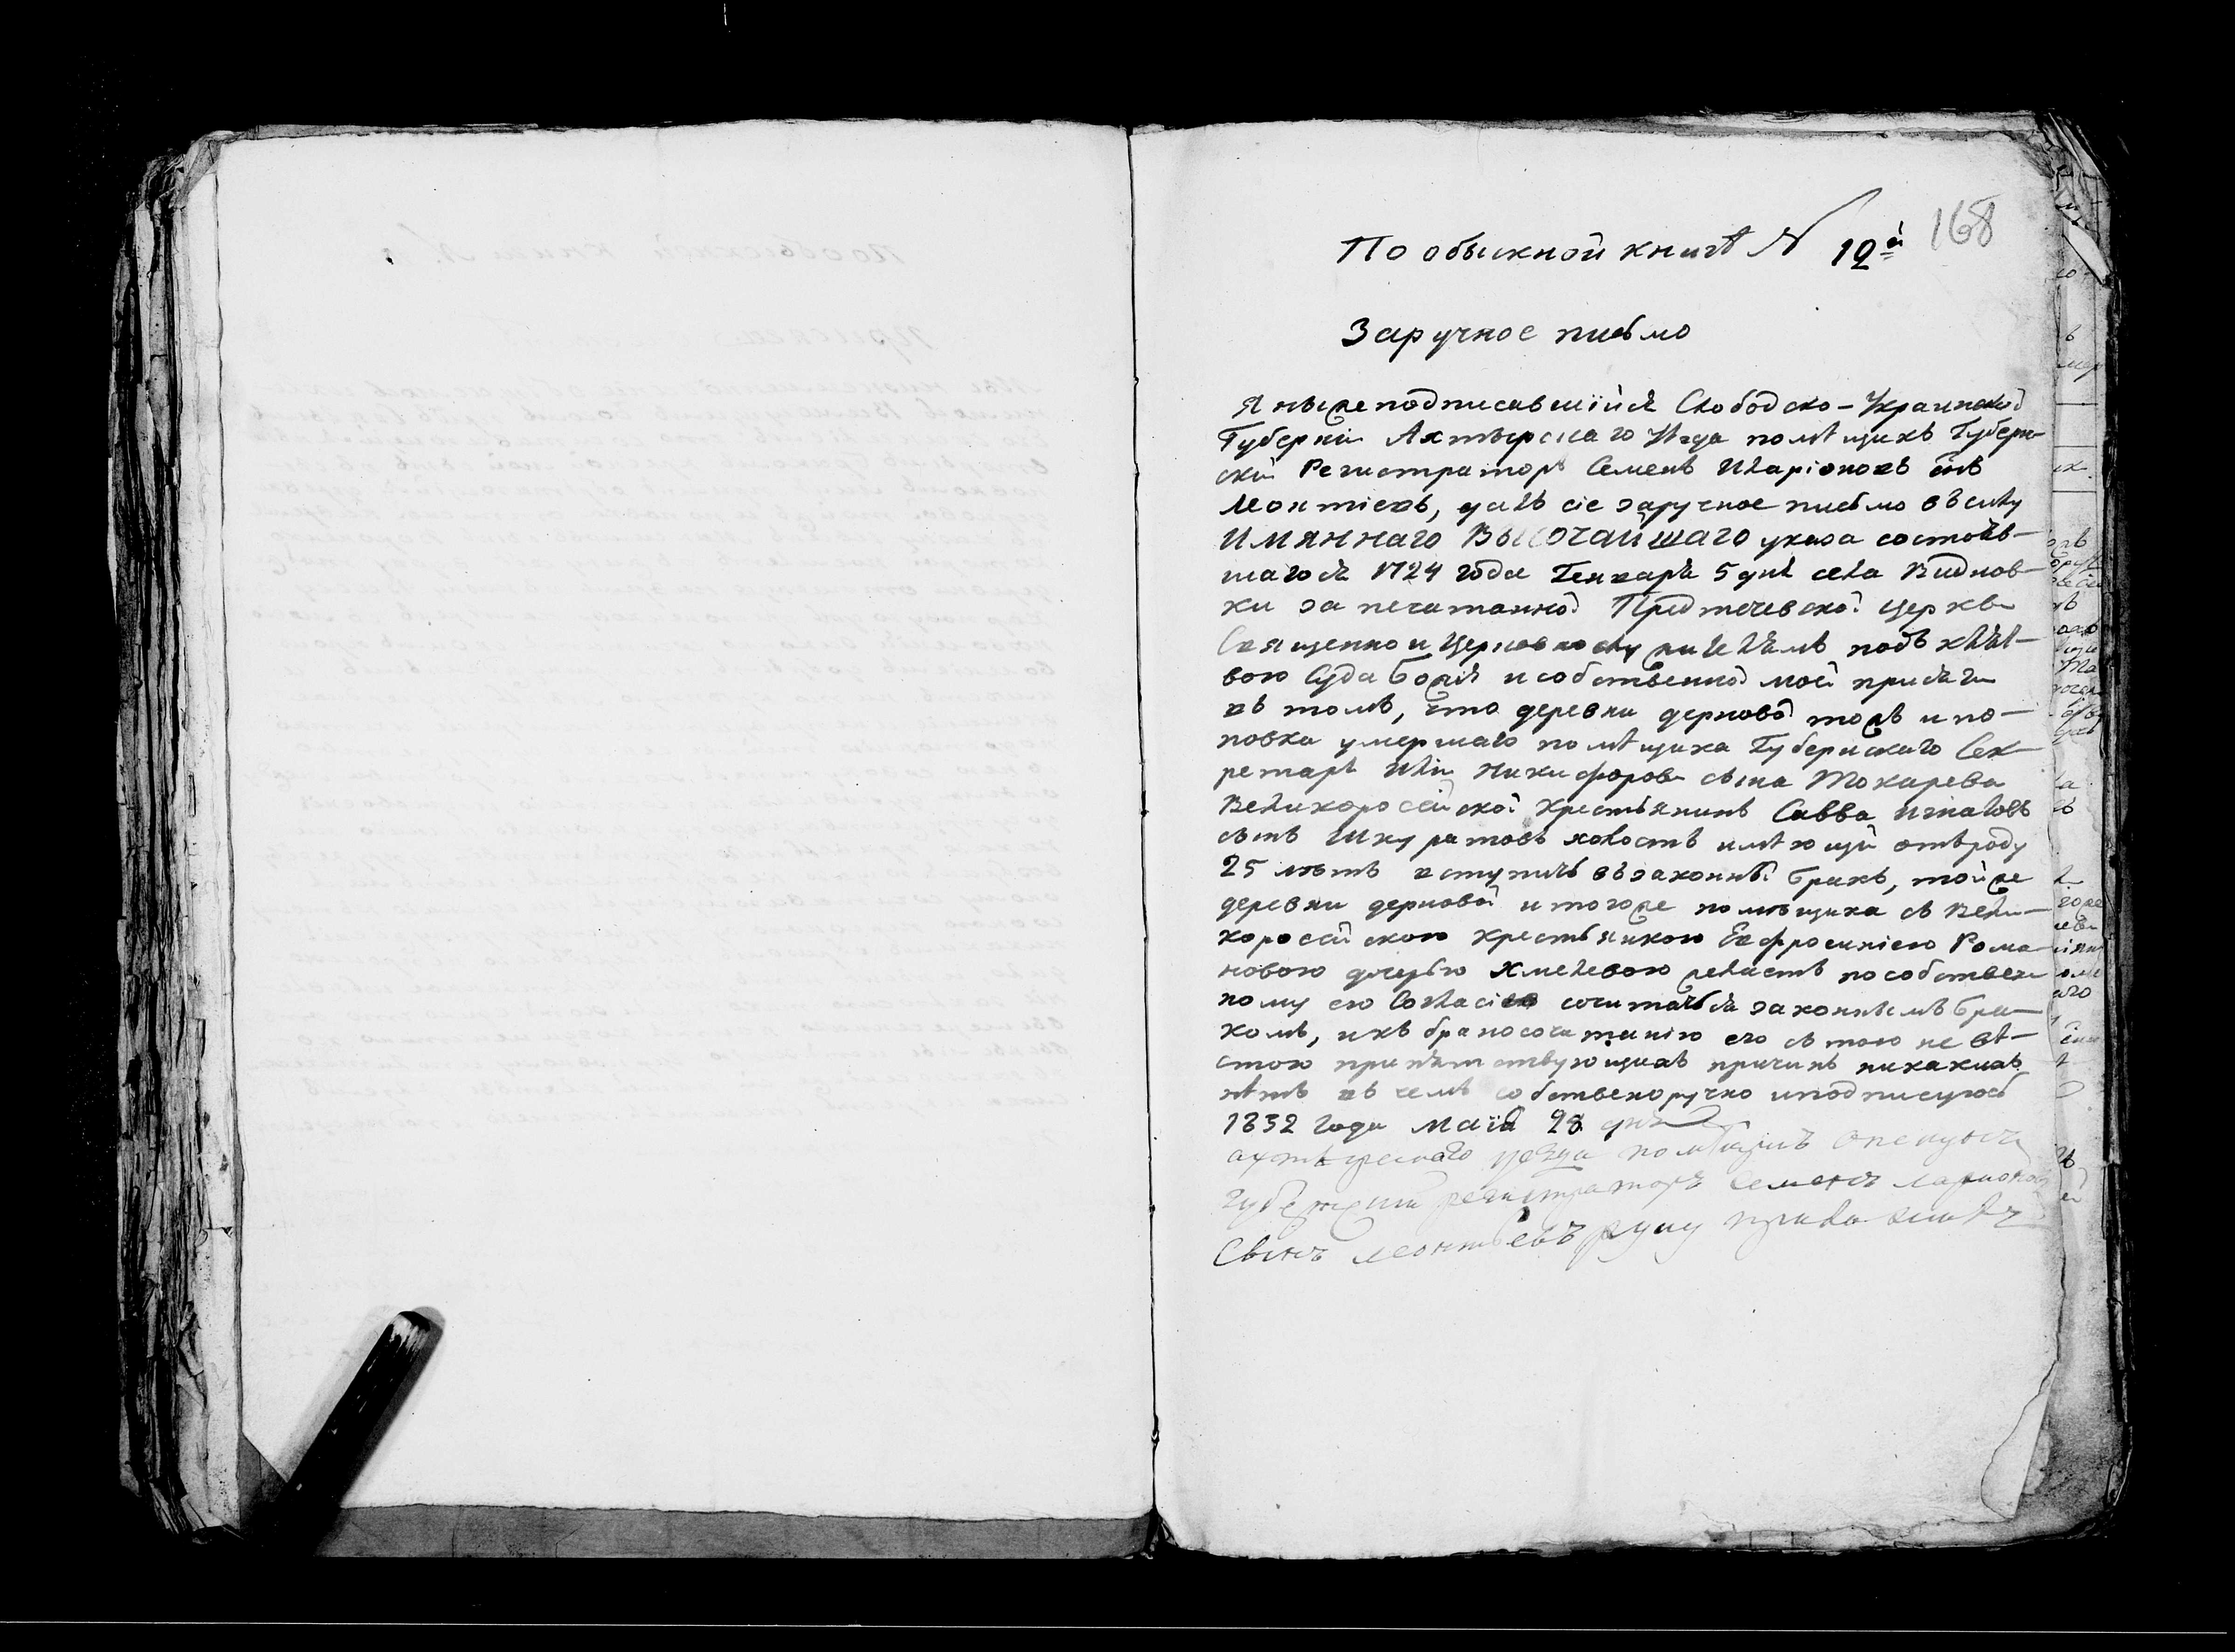 168
По обыскной книгѣ № 12й
Заручное письмо
Я нижеподписавшійся Слободско-Украинской
Губерніи Ахтырскаго Уѣзда помѣщикъ Губерн-
скій Регистраторъ Семенъ Иларіоновъ сынъ
Леонтіевъ, далъ сіе заручное письмо въ силу
ИМЯННАГО ВЫСОЧАЙШАГО указа состояв-
шагося 1724 года Генваря 5 дня села Виднов-
ки за печатанной Предтечевской церкви
Священно и Церковнослужителямъ подъ клят-
вою Суда Божія и собственной моей присяги
въ томъ, что деревни дерновой тожъ и по-
повка умершаго помѣщика Губернскаго Сек-
ретаря Ильи Никифорова сына Токарева
Великоросейской Крестьянинъ Савва Игнатовъ
сынъ Шкуратовъ холостъ имѣющій отъ роду
25 лѣтъ вступить въ законный бракъ, той же
деревни дерновой и того же помѣщика съ Вели-
коросейскою Крестьянкою Евфросиніею Рома-
новою дочерью Хмелевою желаетъ по собствен-
ному его Согласію сочитаться законнымъ бра-
комъ, и къ бракосочитанію его съ тою невѣ-
стою припятствующихъ причинъ никакихъ
нѣтъ въ чемъ собственоручно и подписуюсь
1832 года маія 28 дня
ахтырскаго уезда помѣщикъ опекунъ
губернский регистраторъ Семенъ ларионовъ
Сынъ леонтьевъ руку приложилъ